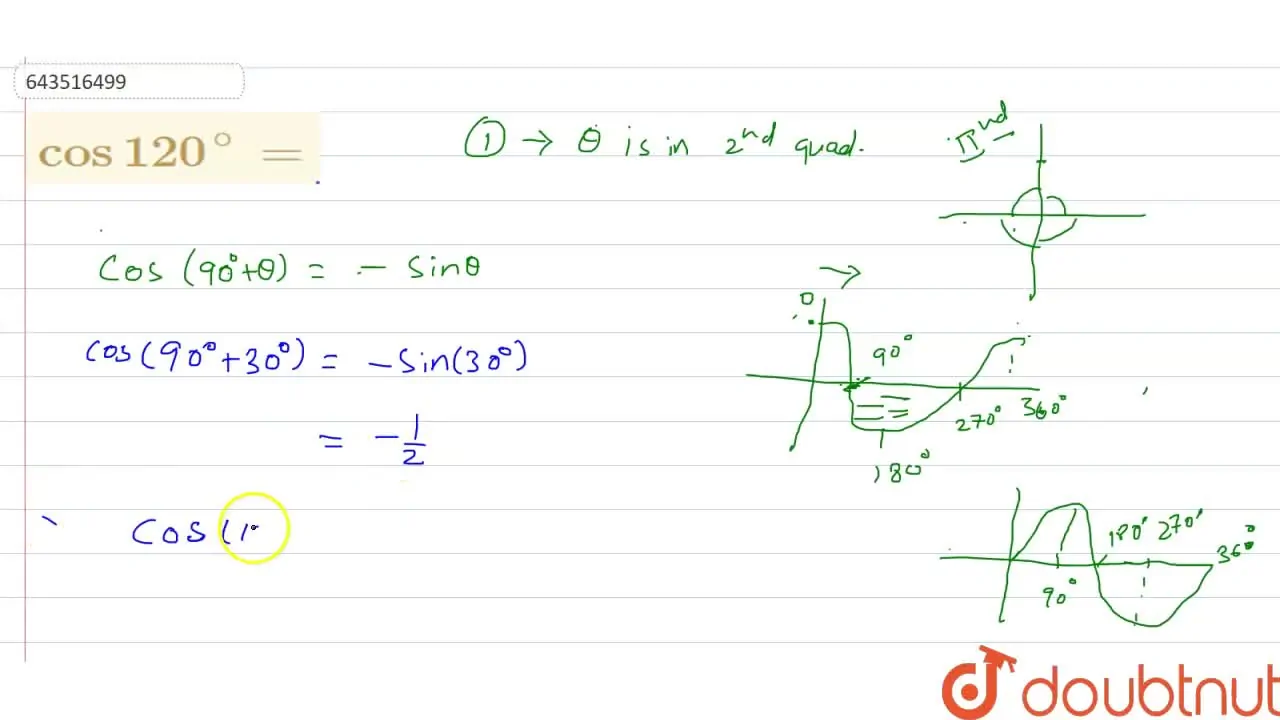 643516499
cos 120° =
① → θ is in 2nd quad.
IInd
Cos (90°+θ) = - Sinθ
Cos(90°+30°) = - Sin(30°)
= - 1/2
Cos (1
0
90°
180°
270°
360°
90°
180°
270°
360°
doubtnut